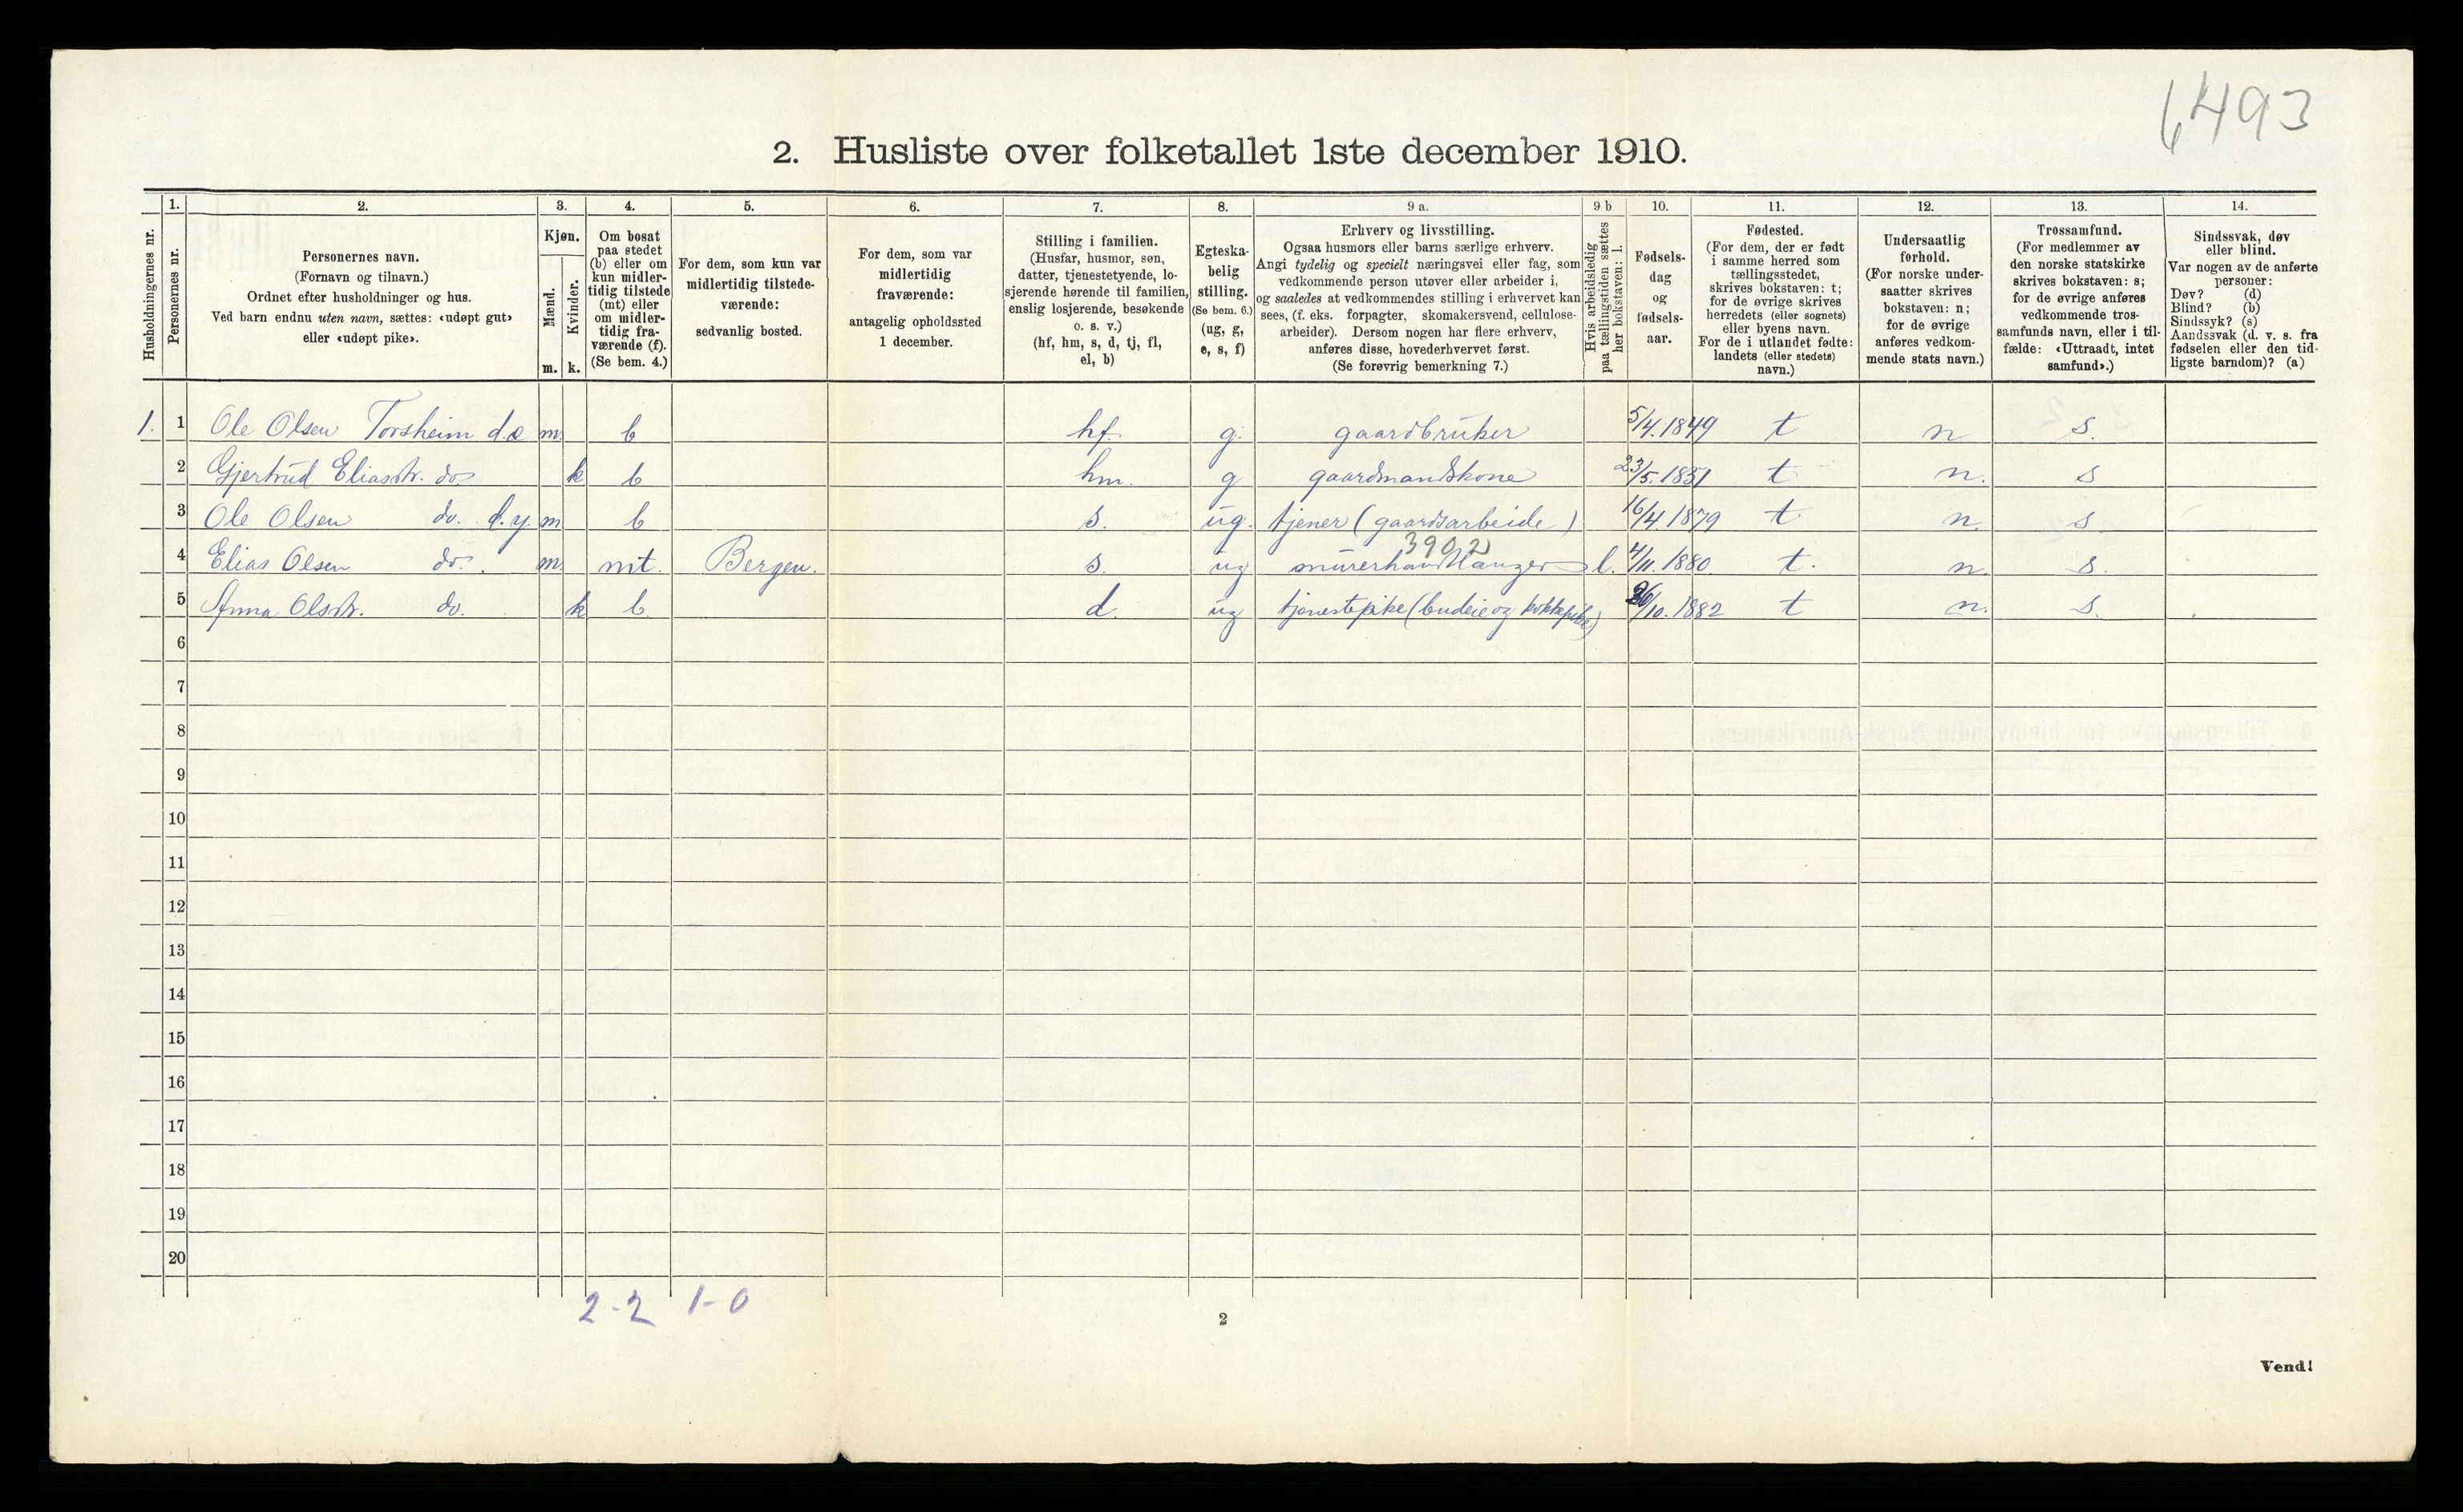 6493
2. Husliste over folketallet 1ste december 1910.
Husholdningernes nr.
1.
Personernes nr.
2.
Personernes navn.
(Fornavn og tilnavn.)
Ordnet efter husholdninger og hus.
Ved barn endnu uten navn, sættes: «udøpt gut»
eller «udøpt pike».
3.
Kjøn.
Mænd.
Kvinder.
m. k.
4.
Om bosat
paa stedet
(b) eller om
kun midler-
tidig tilstede
(mt) eller
om midler-
tidig fra-
værende (f).
(Se bem. 4.)
5.
For dem, som kun var
midlertidig tilstede-
værende:
sedvanlig bosted.
6.
For dem, som var
midlertidig
fraværende:
antagelig opholdssted
1 december.
7.
Stilling i familien.
(Husfar, husmor, søn,
datter, tjenestetyende, lo-
sjerende hørende til familien,
enslig losjerende, besøkende
o. s. v.)
(hf, hm, s, d, tj, fl,
el, b)
8.
Egteska-
belig
stilling.
(Se bem. 6.)
(ug, g,
e, s, f)
9 a.
Erhverv og livsstilling.
Ogsaa husmors eller barns særlige erhverv.
Angi tydelig og specielt næringsvei eller fag, som
vedkommende person utøver eller arbeider i,
og saaledes at vedkommendes stilling i erhvervet kan
sees, (f. eks. forpagter, skomakersvend, cellulose-
arbeider). Dersom nogen har flere erhverv,
anføres disse, hovederhvervet først.
(Se forøvrig bemerkning 7.)
9 b
Hvis arbeidsledig
paa tællingstiden sættes
her bokstaven: l.
10.
Fødsels-
dag
og
fødsels-
aar.
11.
Fødested.
(For dem, der er født
i samme herred som
tællingsstedet,
skrives bokstaven: t;
for de øvrige skrives
herredets (eller sognets)
eller byens navn.
For de i utlandet fødte:
landets (eller stedets)
navn.)
12.
Undersaatlig
forhold.
(For norske under-
saatter skrives
bokstaven: n;
for de øvrige
anføres vedkom-
mende stats navn.)
13.
Trossamfund.
(For medlemmer av
den norske statskirke
skrives bokstaven: s;
for de øvrige anføres
vedkommende tros-
samfunds navn, eller i til-
fælde: «Uttraadt, intet
samfund».)
14.
Sindssvak, døv
eller blind.
Var nogen av de anførte
personer:
Døv? (d)
Blind? (b)
Sindssyk? (s)
Aandssvak (d. v. s. fra
fødselen eller den tid-
ligste barndom)? (a)
1. 1 Ole Olsen Torsheim d.æ m. b hf. g. gaardbruker 5/4.1849 t n s.
2 Gjertrud Eliasdtr. do k b hm. g gaardmandskone 23/5.1851 t n. s
3 Ole Olsen do. d.y. m b s. ug. tjener (gaardsarbeide) 16/4.1879 t n. s
3902
4 Elias Olsen do. m. mt. Bergen. s. ug murerhandtlanger l. 4/11.1880. t. n. s.
5 Anna Olsdtr. do. k b. d. ug tjenestepike (budeie og kokkepike) 26/10.1882 t n. s.
6
7
8
9
10
11
12
13
14
15
16
17
18
19
20
2-2 1-0
2
Vend!